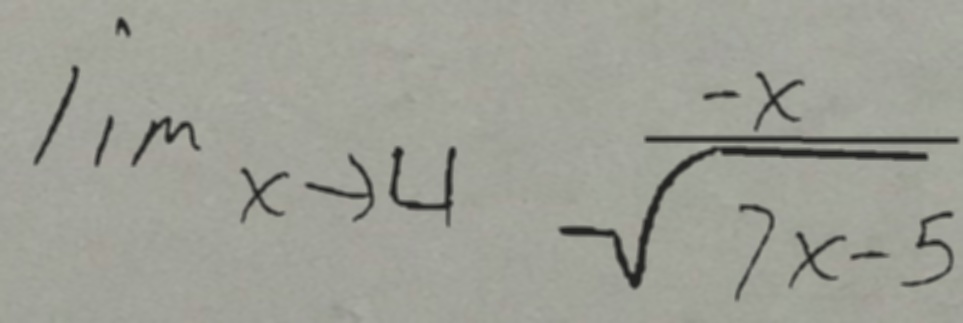 lim x→4 -x / √(7x-5)